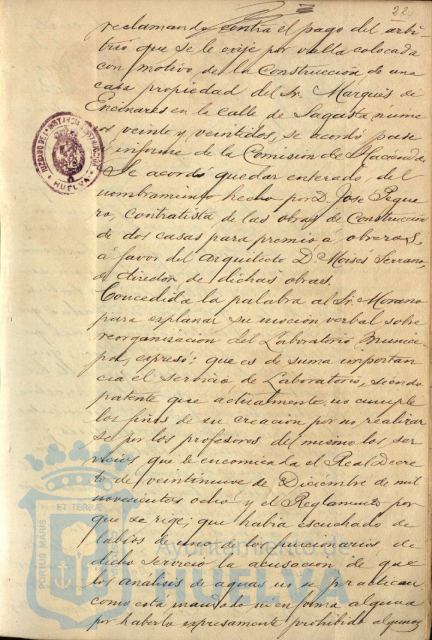 22
reclamando contra el pago del arbi-
trio que se le exije por valla colocada
con motivo de la Construcción de una
casa propiedad del Sr. Marqués de
Encinares en la calle de Sagasta nume-
ros veinte y veintidos, se acordó pase
á informe de la Comision de Hacienda.
Se acordó quedar enterado del
nombramiento hecho por D. José Pegue-
ro, contratista de las obras de Construcción
de dos casas para premio á obreros,
á favor del Arquitecto D. Moises Serrano,
de director de dichas obras.
Concedida la palabra al Sr. Moreno
para explanar su moción verbal sobre
reorganizacion del Laboratorio Munici-
pal, expresó: que es de suma importan-
cia el servicio de Laboratorio, siendo
patente que actualmente no cumple
los fines de su creacion por no realizar
se por los profesores del mismo los ser-
vicios que le encomienda el Real Decre-
to de veintinueve de Diciembre de mil
novecientos ocho y el Reglamento por
que se rige; que habia escuchado de
labios de uno de los funcionarios de
dicho servicio la acusacion de que
los analisis de aguas no se practican
como está mandado ni en forma alguna
por haberlo expresamente prohibido algunos
HUELVA
PORTUS MARIS ET TERRAE
Ayuntamiento de
HUELVA